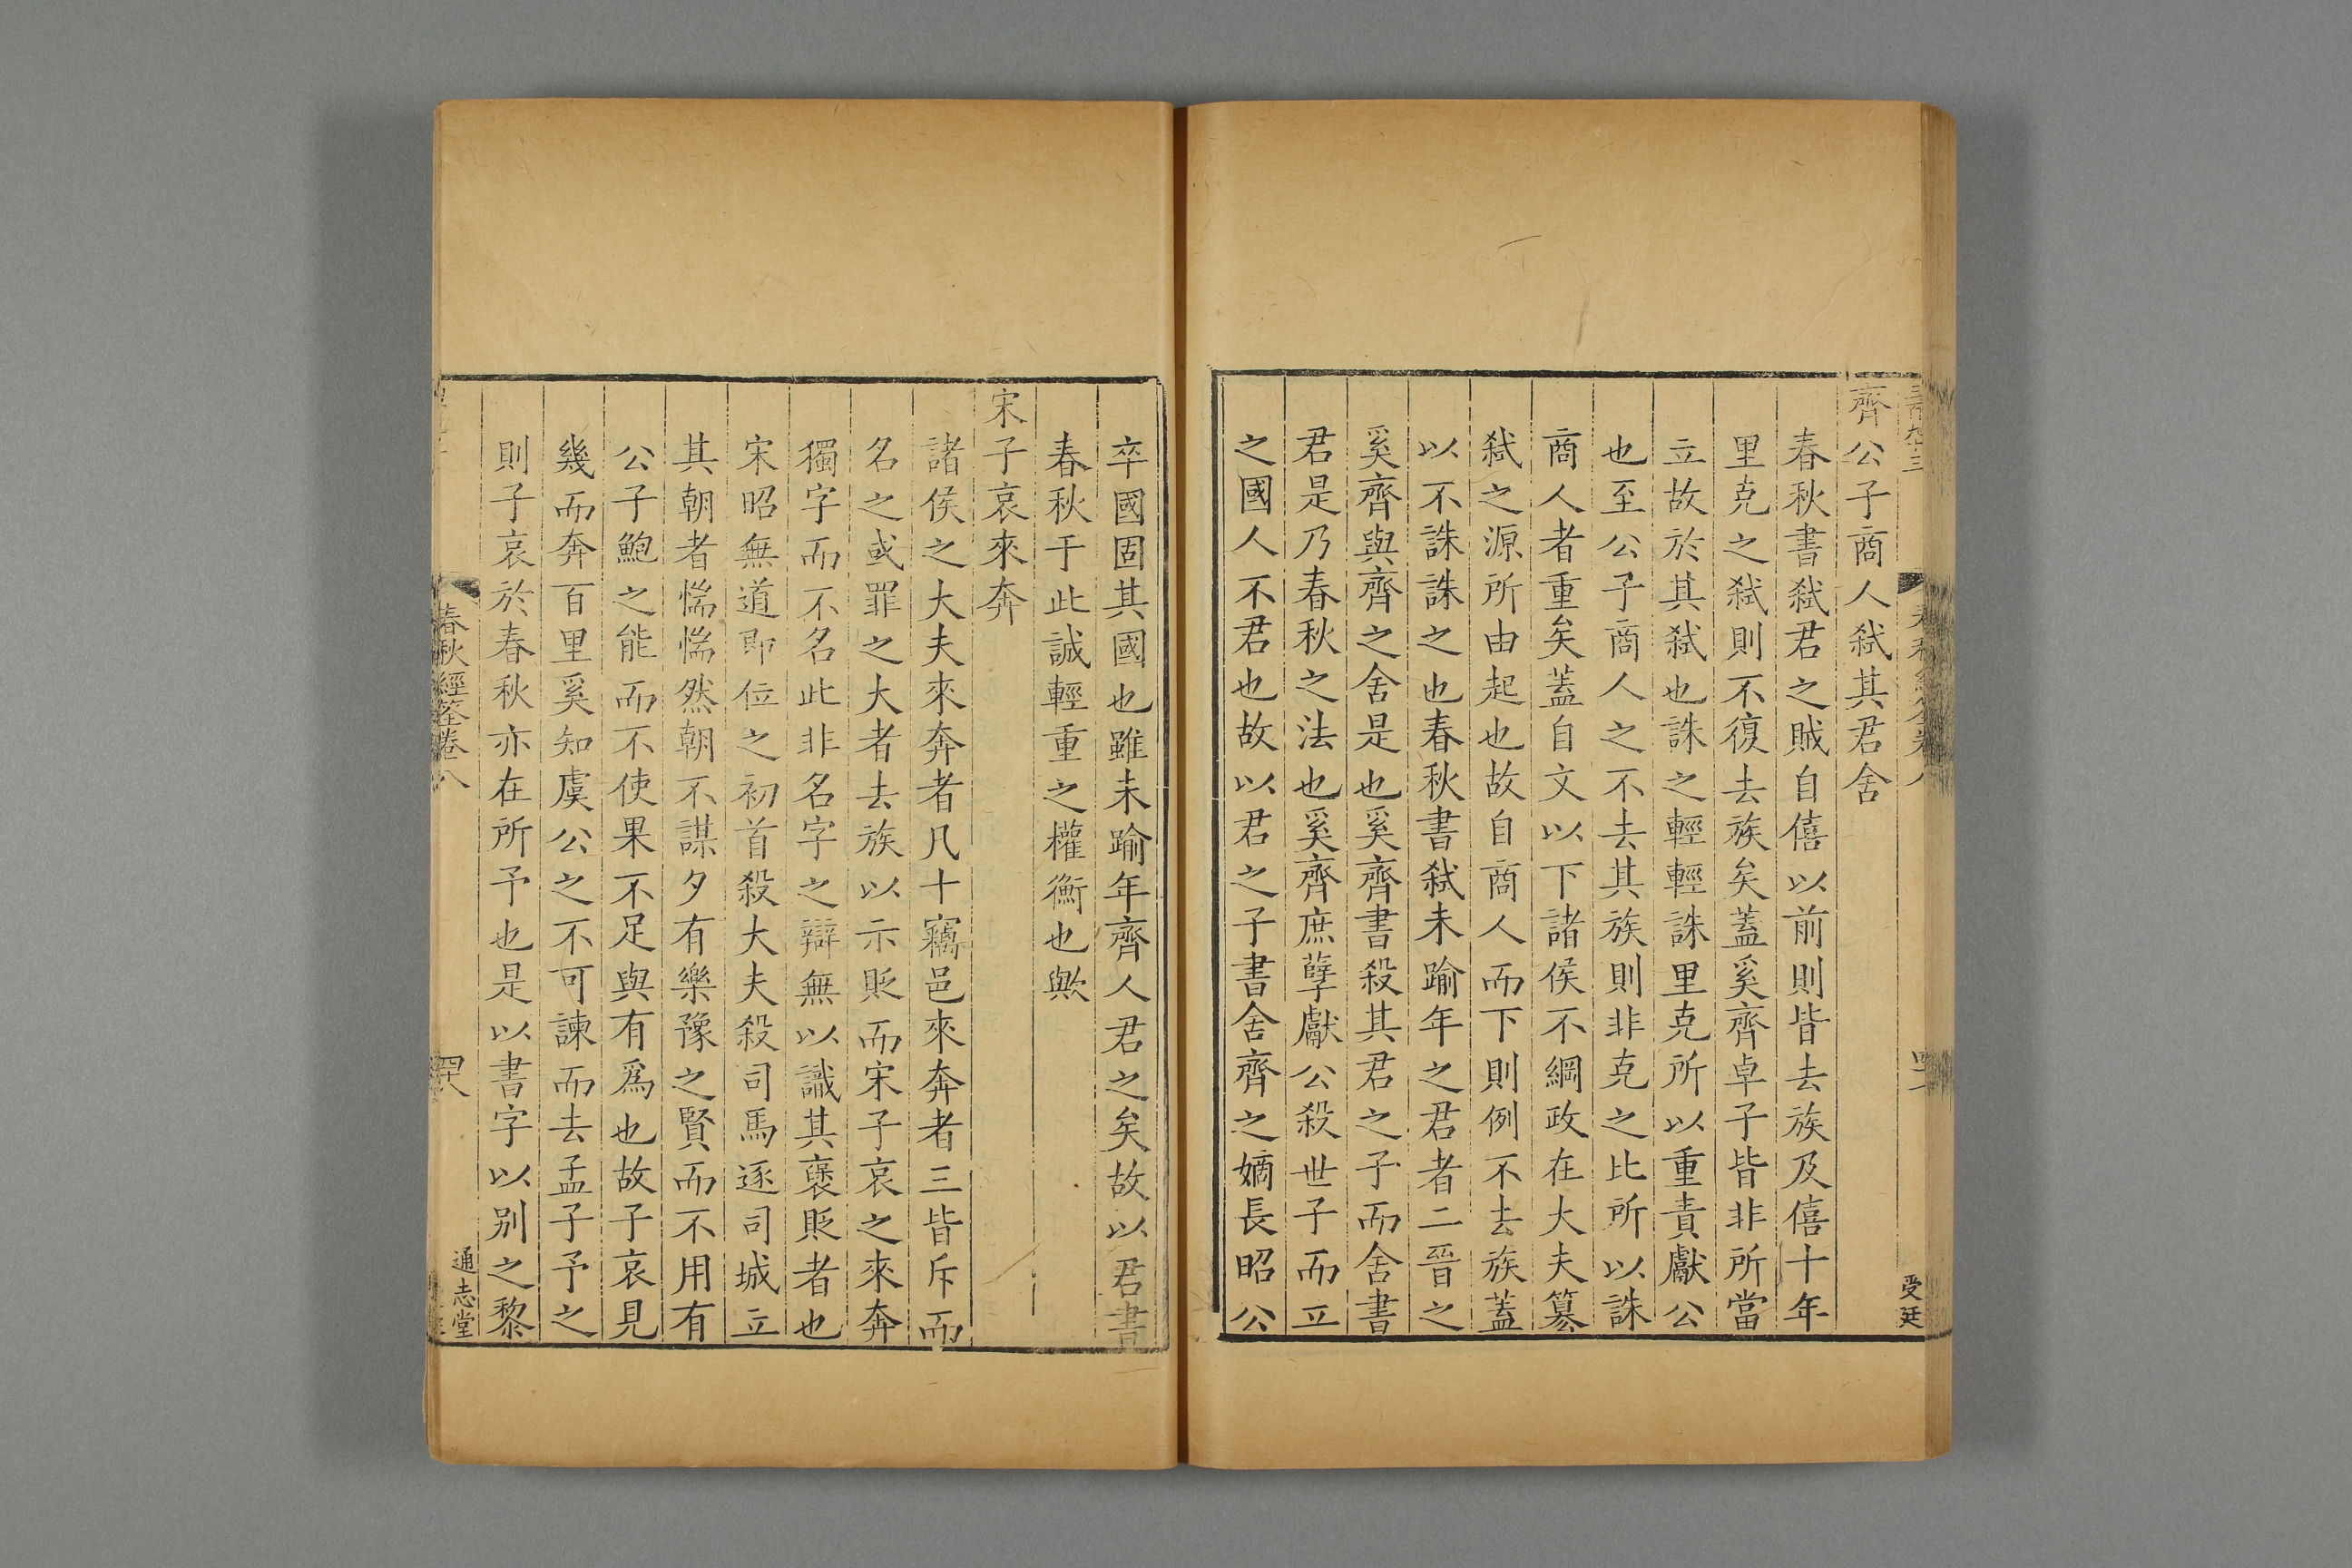 齊公子商人弒其君舍
春秋書弒君之賊自僖以前則皆去族及僖十年
里克之弒則不復去族矣蓋奚齊卓子皆非所當
立故於其弒也誅之輕輕誅里克所以重責獻公
也至公子商人之不去其族則非克之比所以誅
商人者重矣蓋自文以下諸侯不綱政在大夫篡
弒之源所由起也故自商人而下則例不去族蓋
以不誅誅之也春秋書弒未踰年之君者二晉之
奚齊與齊之舍是也奚齊書殺其君之子而舍書
君是乃春秋之法也奚齊庶孽獻公殺世子而立
之國人不君也故以君之子書舍齊之嫡長昭公
卒國固其國也雖未踰年齊人君之矣故以君書
春秋于此誠輕重之權衡也歟
宋子哀來奔
諸侯之大夫來奔者凡十竊邑來奔者三皆斥而
名之或罪之大者去族以示貶而宋子哀之來奔
獨字而不名此非名字之辯無以識其褒貶者也
宋昭無道即位之初首殺大夫殺司馬逐司城立
其朝者惴惴然朝不謀夕有樂豫之賢而不用有
公子鮑之能而不使果不足與有爲也故子哀見
幾而奔百里奚知虞公之不可諫而去孟子予之
則子哀於春秋亦在所予也是以書字以别之黎
春秋經筌卷八
四十八
通志堂